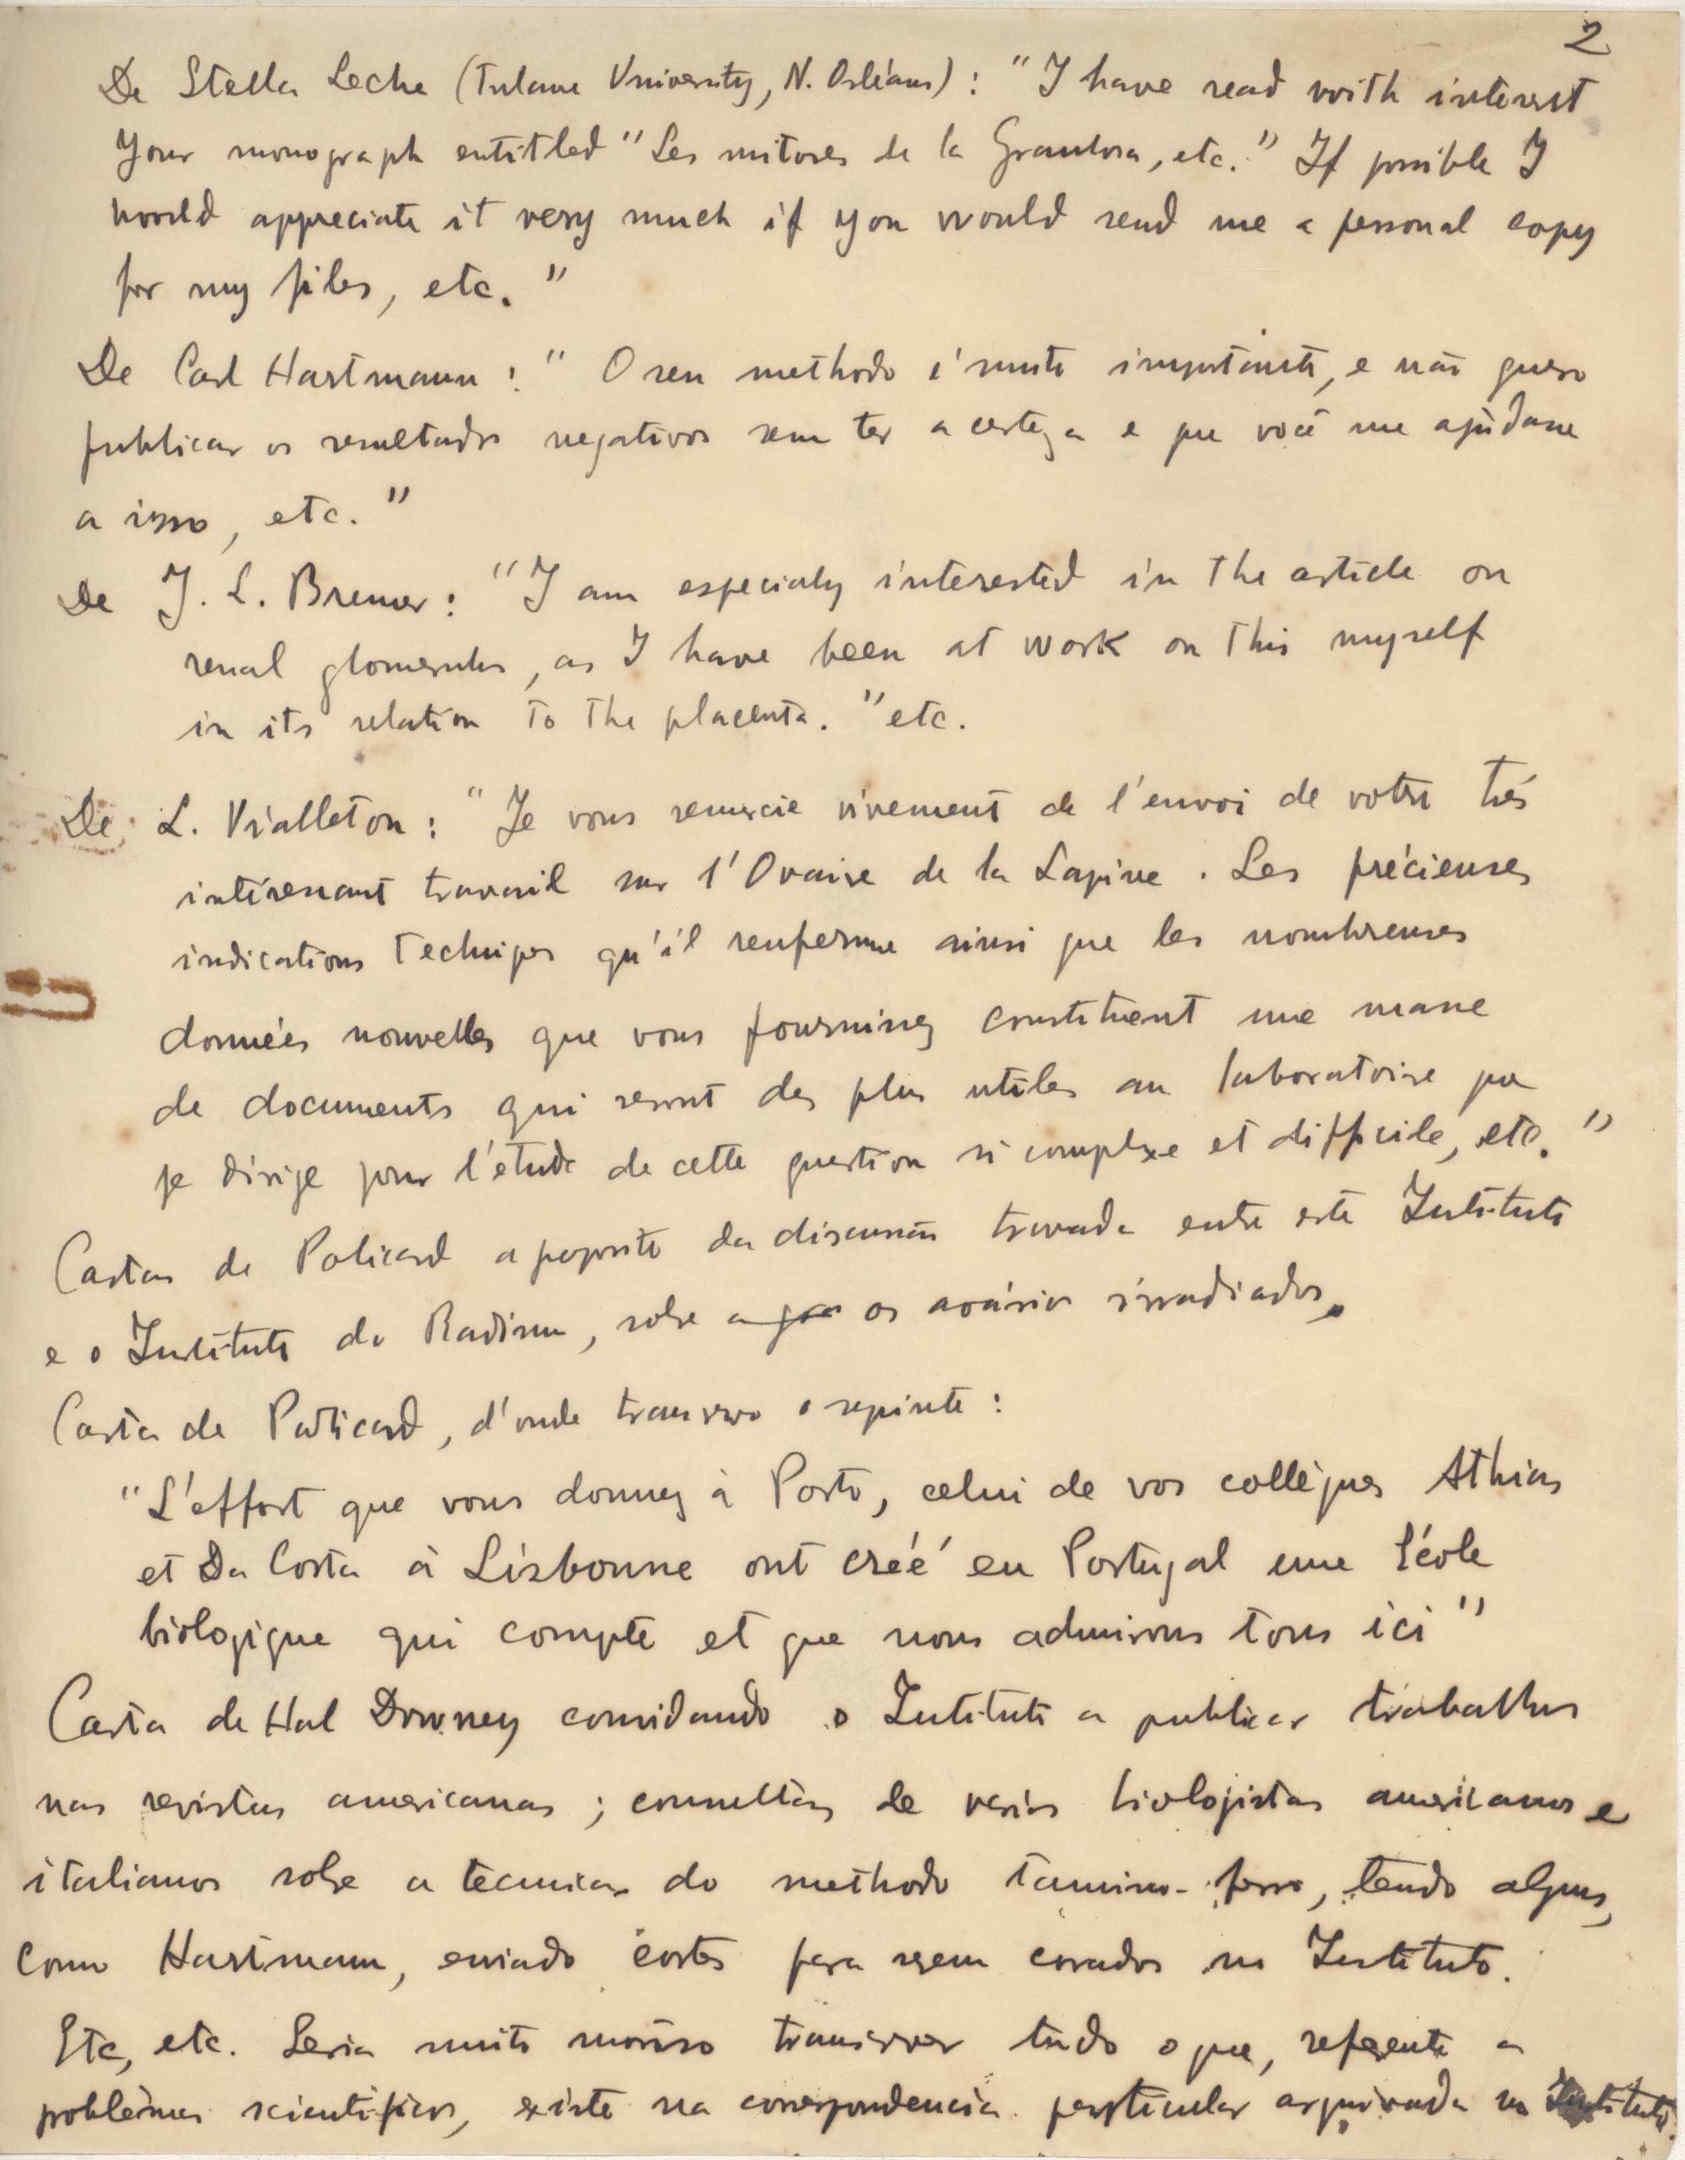 2
De Stella Leche (Tulane University, N. Orléans): "I have read with interest
your monograph entitled "Les mitoses de la Granulosa, etc." If possible I
would appreciate it very much if you would send me a personal copy
for my files, etc."
De Carl Hartmann: "O seu methodo é muito importante, e não quero
publicar os resultados negativos sem ter a certeza e que você me ajudasse
a isso, etc."
De J. L. Bremer: "I am especialy interested in the article on
renal glomerulus, as I have been at work on this myself
in its relation to the placenta." etc.
De L. Vialleton: "Je vous remercie vivement de l'envoi de votre très
intéressant travail sur l'Ovaire de la Lapine. Les précieuses
indications techniques qu'il renferme ainsi que les nombreuses
données nouvelles que vous fournissez constituent une masse
de documents qui seront des plus utiles au laboratoire que
je dirige pour l'étude de cette question si complexe et difficile, etc."
Cartas de Policard a proposito da discussão travada entre este Instituto
e o Instituto do Radium, sobre os ovários irradiados.
Carta de Policard, d'onde transcrevo o seguinte:
"L'effort que vous donnez à Porto, celui de vos collègues Athias
et Da Costa à Lisbonne ont créé en Portugal une École
biologique qui compte et que nous admirons tous ici"
Carta de Hal Downey convidando o Instituto a publicar trabalhos
nas revistas americanas; consultas de varios biologistas americanos e
italianos sobre a tecnica do methodo tanino-ferro, tendo alguns,
como Hartmann, enviado cortes para serem corados no Instituto.
Etc, etc. Seria muito moroso transcrever tudo o que, referente a
problemas scientificos, existe na correspondencia particular arquivada no Instituto.